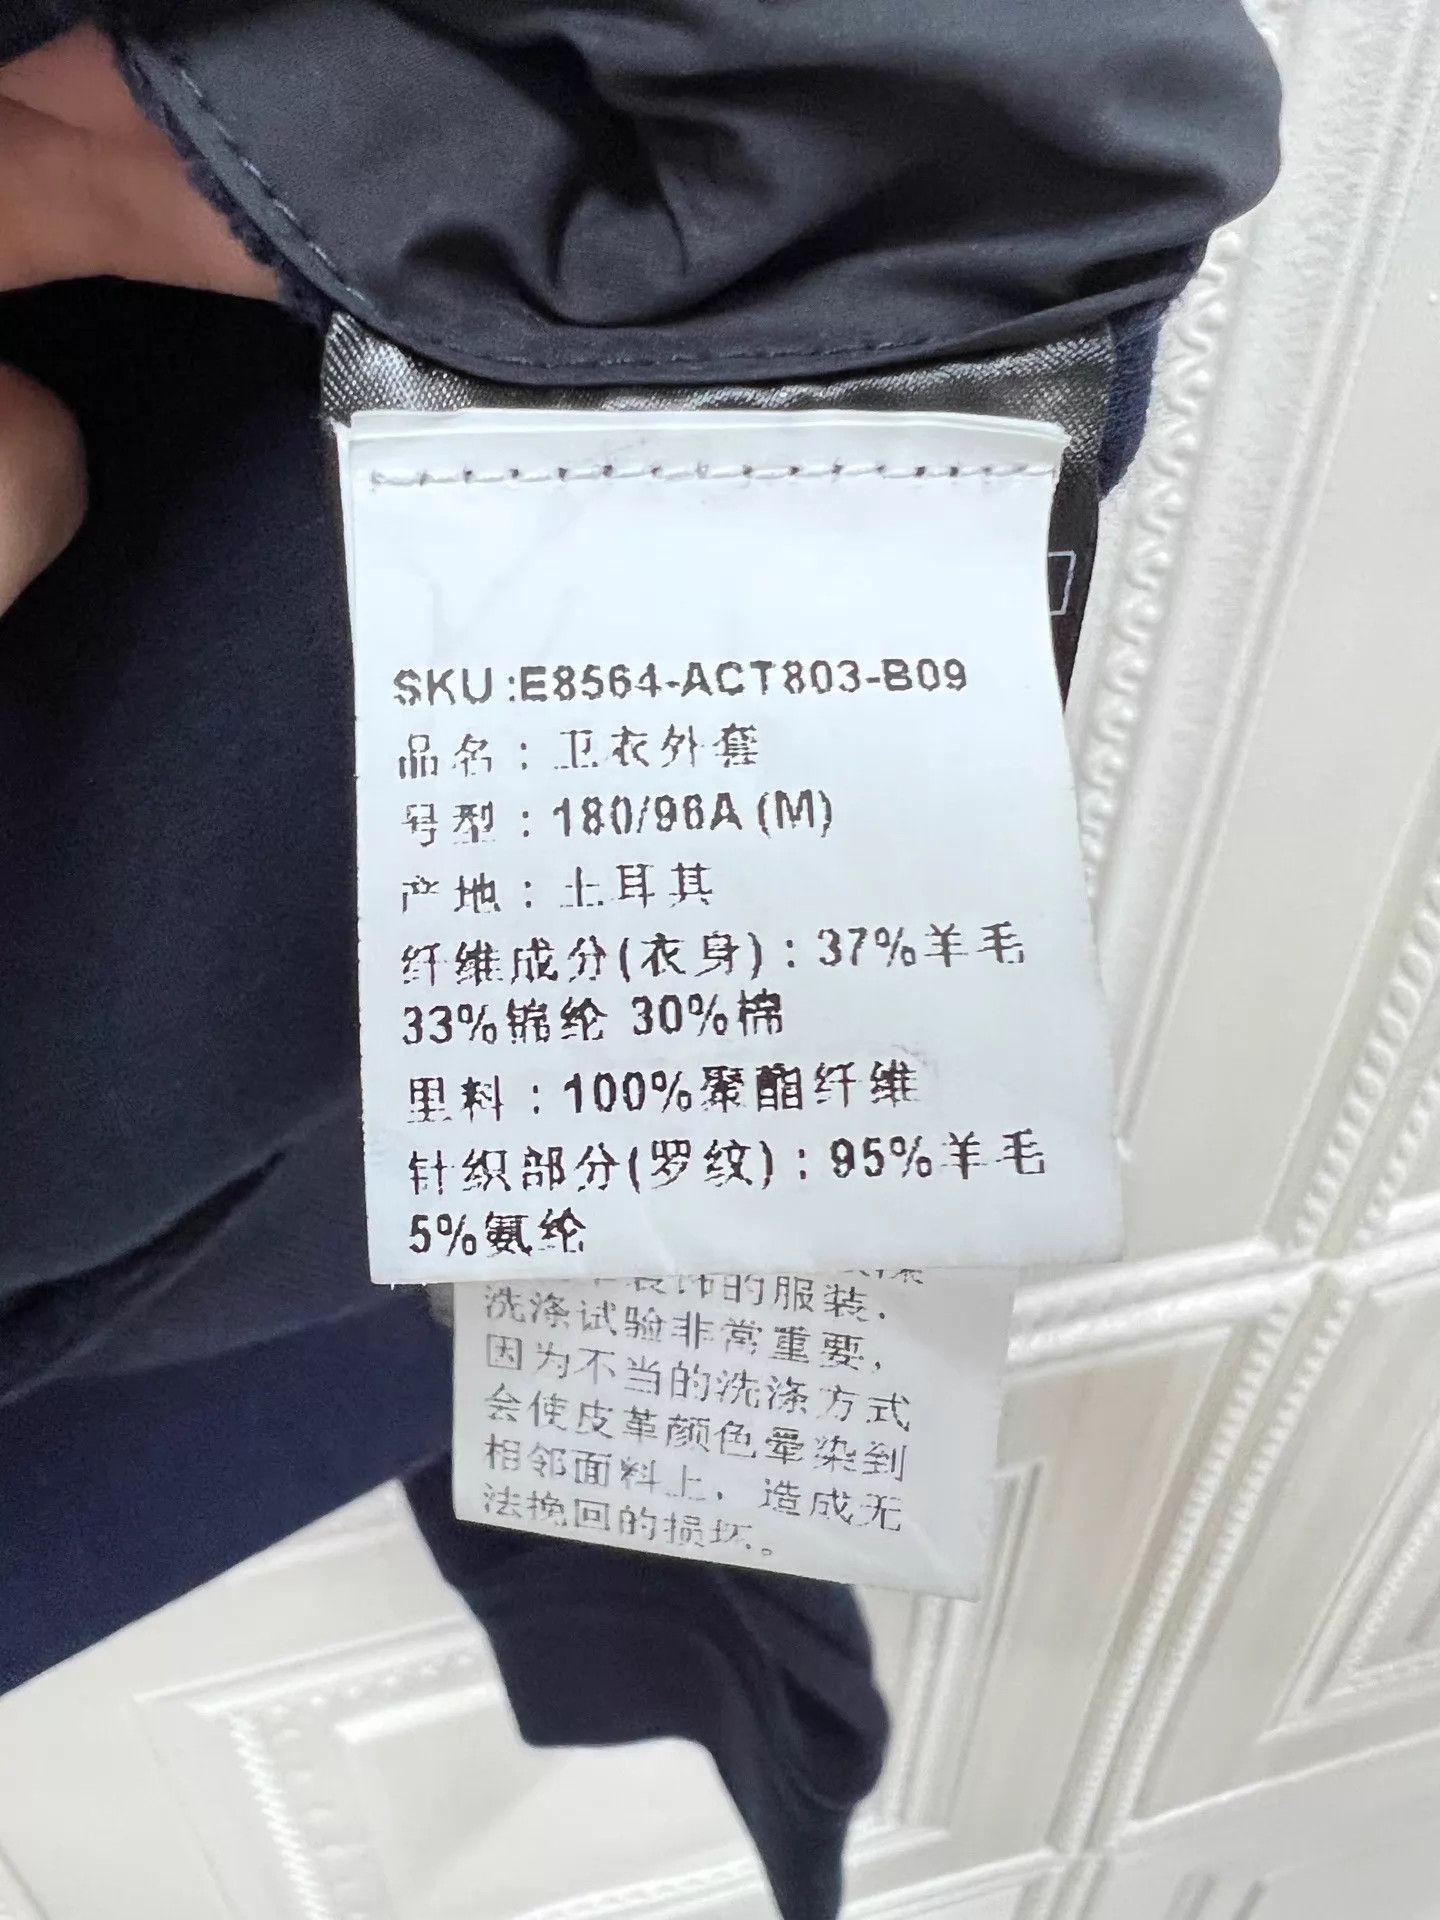 SKU:E8564-ACT803-B09
品名：卫衣外套
号型：180/96A (M)
产地：土耳其
纤维成分(衣身)：37%羊毛
33%锦纶 30%棉
里料：100%聚酯纤维
针织部分(罗纹)：95%羊毛
5%氨纶
装饰的服装，
洗涤试验非常重要，
因为不当的洗涤方式
会使皮革颜色晕染到
相邻面料上，造成无
法挽回的损坏。